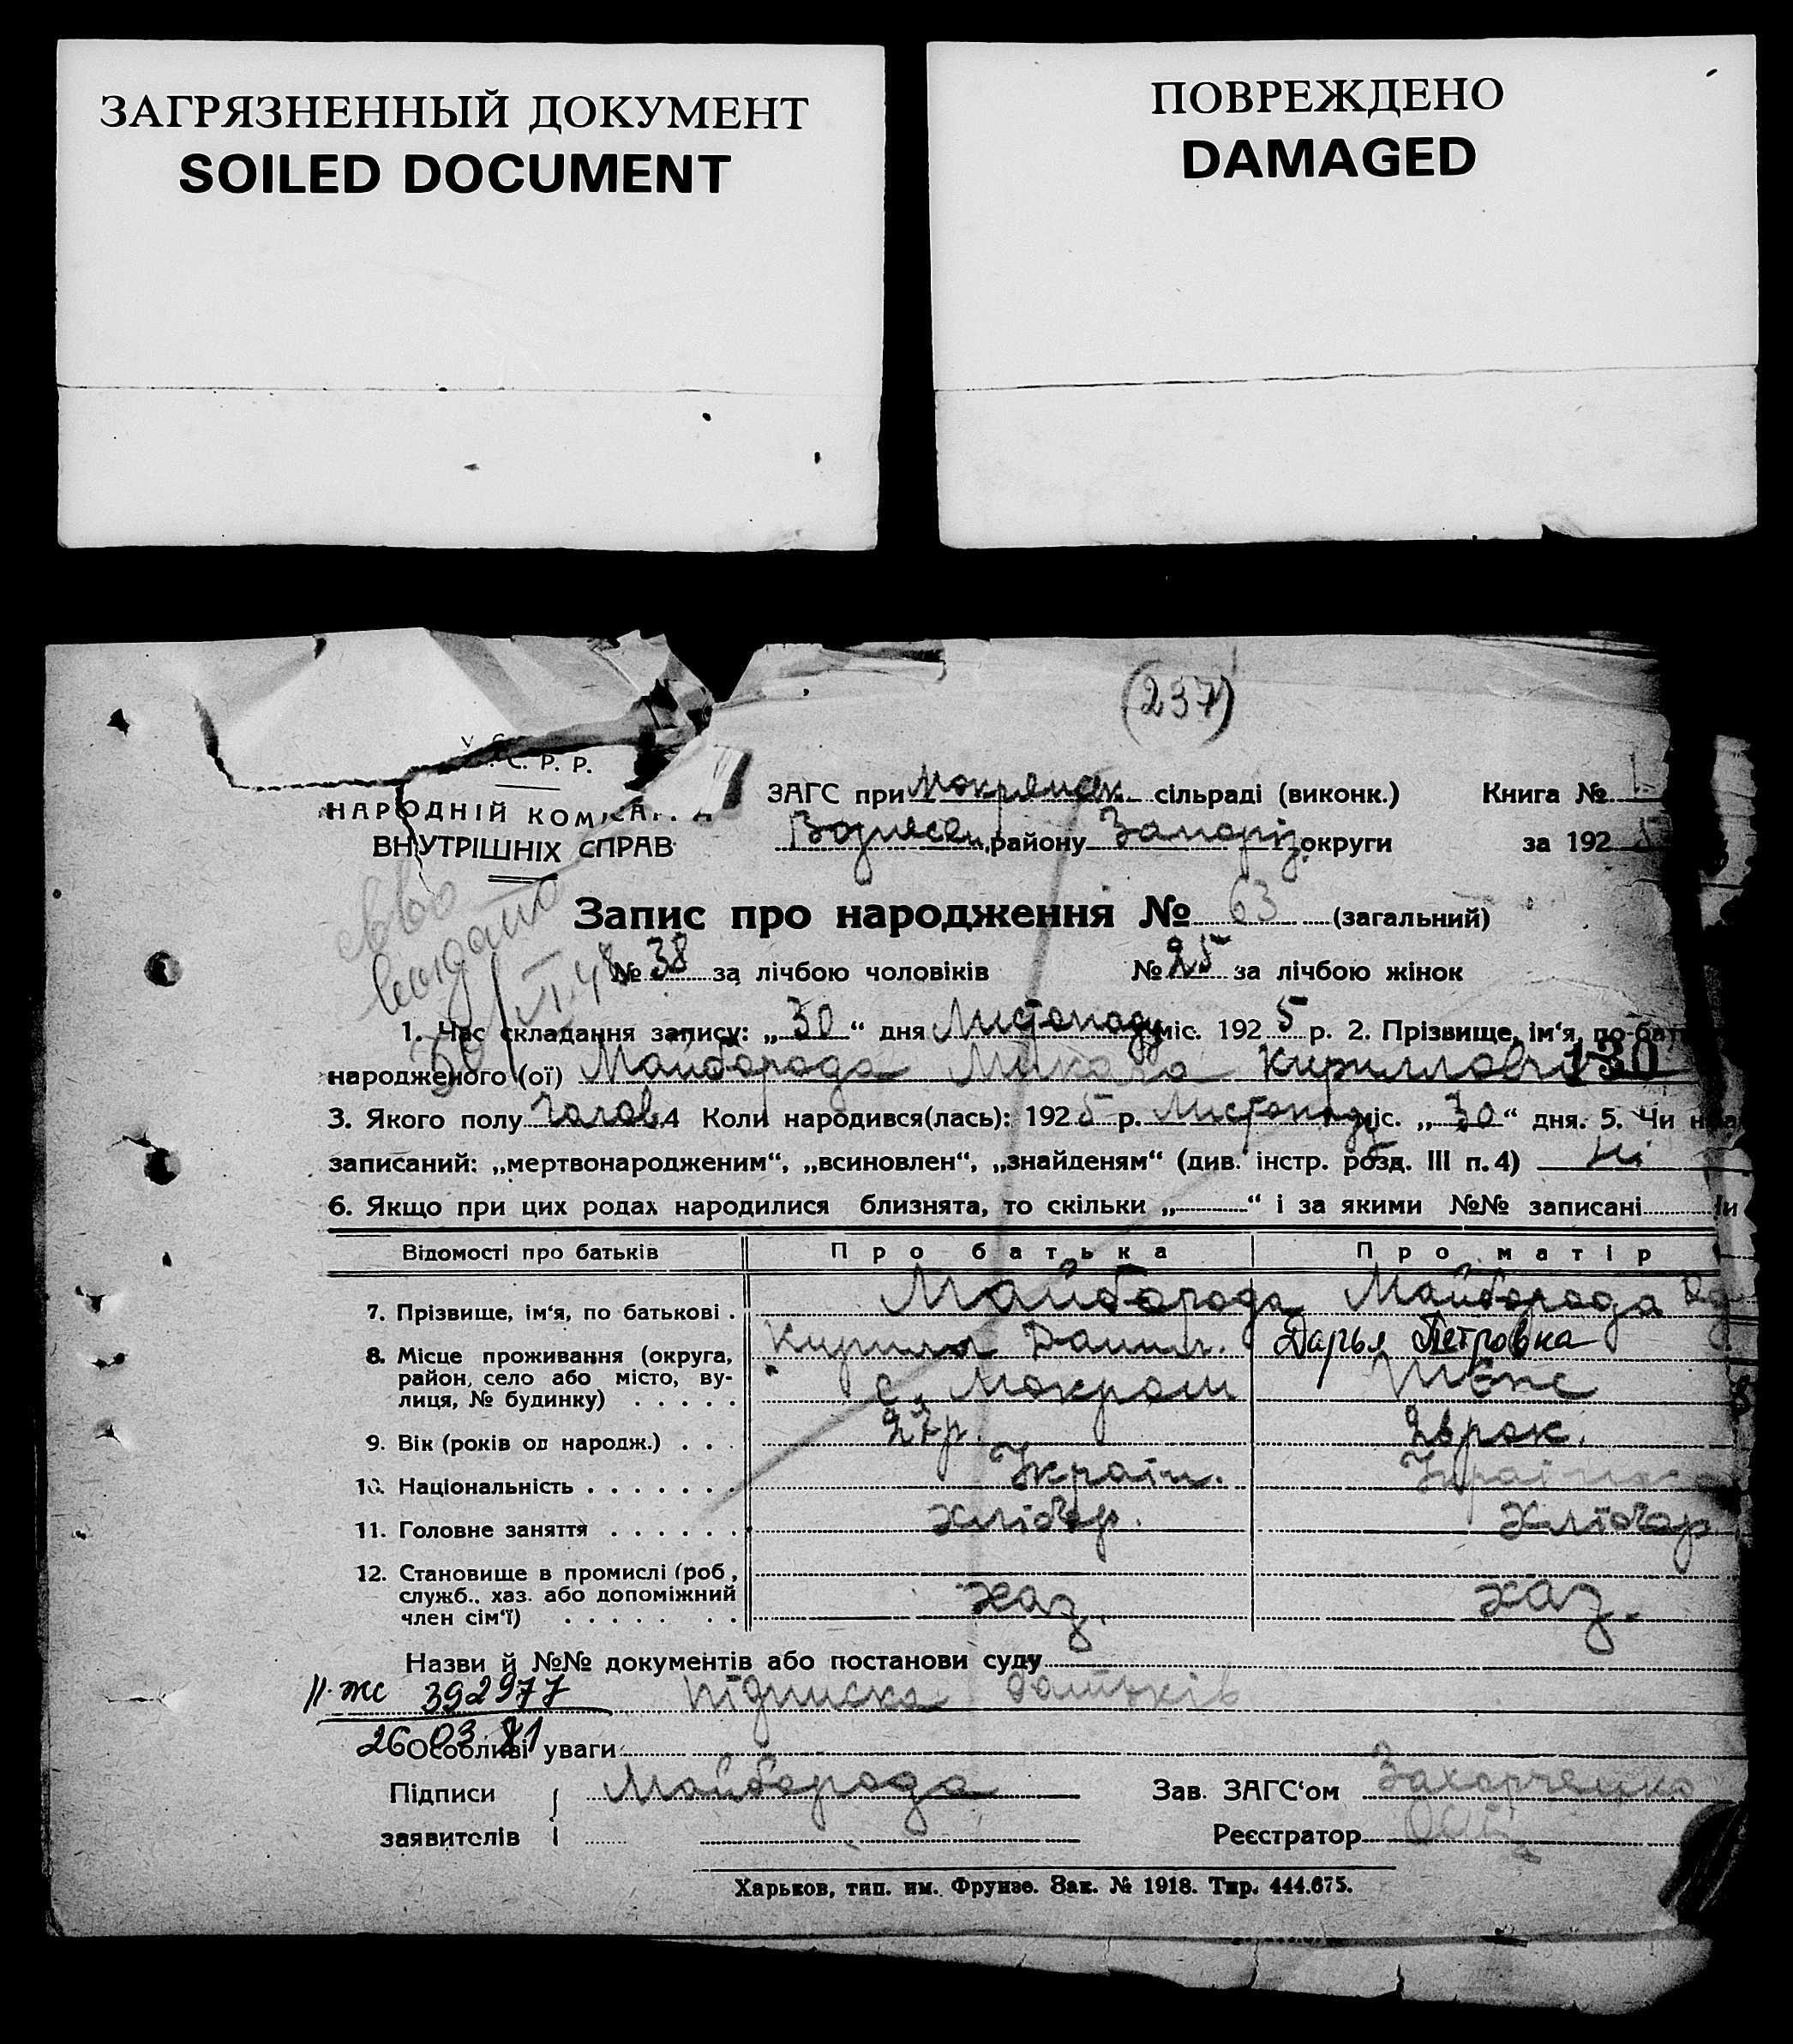 ЗАГРЯЗНЕННЫЙ ДОКУМЕНТ
SOILED DOCUMENT
ПОВРЕЖДЕНО
DAMAGED
(237)
С. Р. Р.
НАРОДНІЙ
ВНУТРІШНІХ СПРАВ
ЗАГС при Мокрянск. сільраді (виконк.) Книга № 1
Вознесен. району Запоріз. округи за 1925
Запис про народження № 63 (загальний)
№ 38 за лічбою чоловіків № 25 за лічбою жінок
видано
1. Час складання запису: „30“ дня Листопаду міс. 1925 р. 2. Прізвище, ім‘я, по-бат
народженого (ої) Майборода Микола Кириллович 130
3. Якого полу Чолов. 4 Коли народився(лась): 1925 р. Листопаду міс. „30“ дня. 5. Чи
записаний: „мертвонародженим“, „всиновлен“, „знайденям“ (див. інстр. розд. III п. 4) Ні
6. Якщо при цих родах народилися близнята, то скільки „“ і за якими №№ записані
Відомості про батьків Про батька Про матір
7. Прізвище, ім‘я, по батькові . Майборода Майборода
Кирило Данил. Дарья Петровка
8. Місце проживання (округа,
район, село або місто, ву-
лиця, № будинку) . . . . . с. Мокрян
9. Вік (років од народж.) . . . 27 р. рок.
10. Національність . . . . . . . Україн.
11. Головне заняття . . . . . . Хлібор. Хлібор
12. Становище в промислі (роб,
служб., хаз. або допоміжний
член сім‘ї) . . . . . . . хаз. хаз.
Назви й №№ документів або постанови суду
II-жс 392977 підписка батьків
26 03 81
Особливі уваги
Підписи Майборода Зав. ЗАГС‘ом Захарченко
заявителів Реєстратор
Харьков, тип. им. Фрунзе. Зак. № 1918. Тир. 444.675.